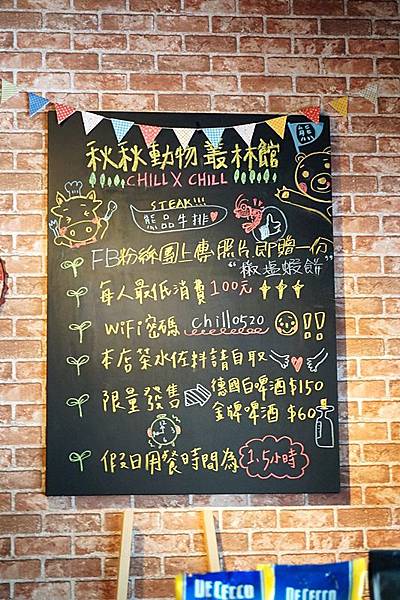 秋秋動物叢林館
CHILL X CHILL
STEAK!!!
熊品牛排
FB粉絲團上傳照片即贈一份
“椒塩蝦餅”
每人最低消費100元
WiFi密碼 chill0520 !!
本店茶水佐料請自取
限量發售 德國白啤酒$150
金牌啤酒 $60
假日用餐時間為 1.5小時
DE CECCO
DE CECCO